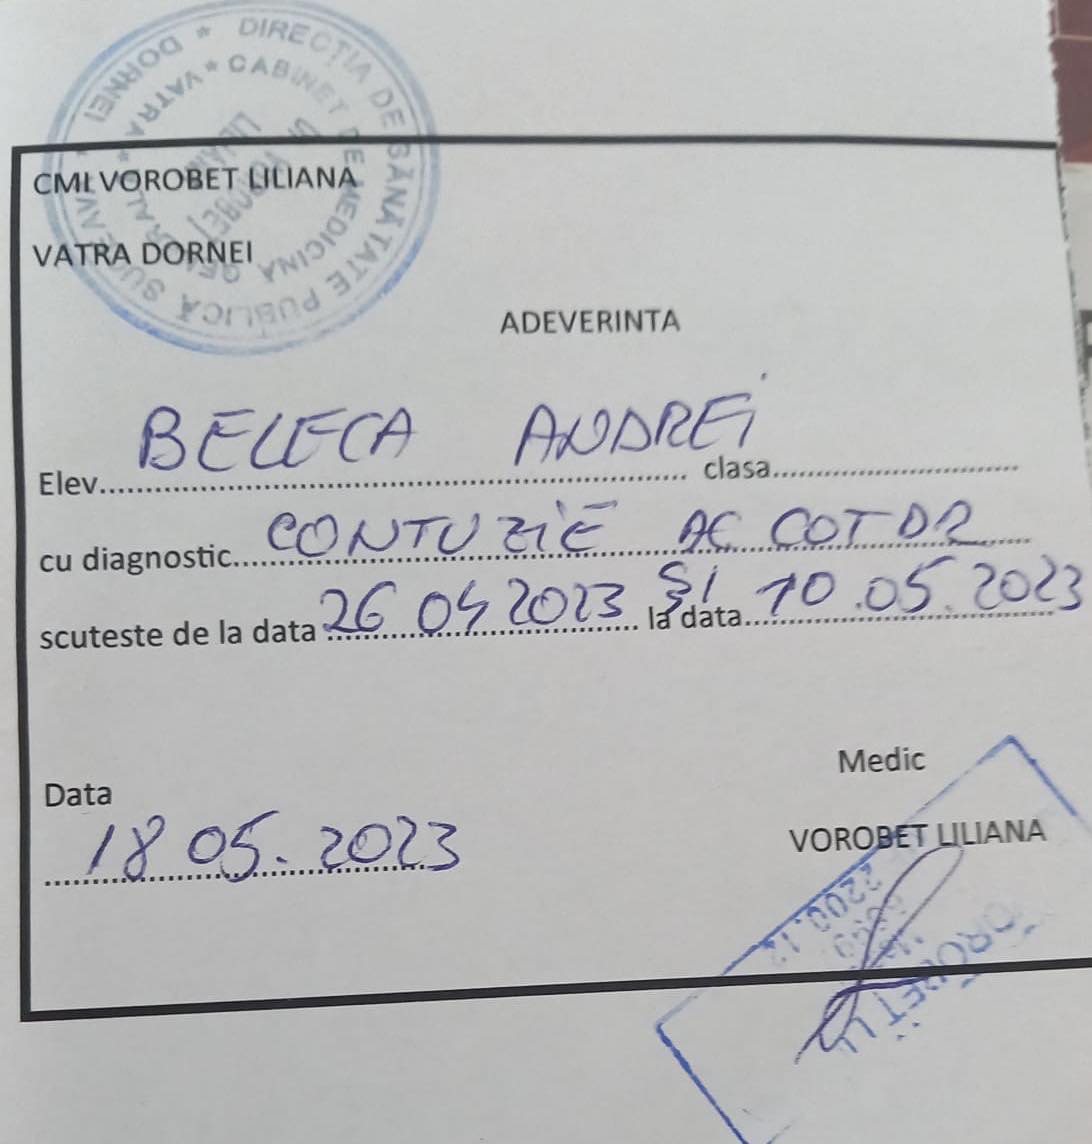 DIRECȚIA DE SĂNĂTATE PUBLICĂ SUCEAVA * VATRA DORNEI *
CABINET DE MEDICINA GENERALA * VATRA
CMI VOROBET LILIANA
VATRA DORNEI
ADEVERINTA
Elev BELECA ANDREI clasa
cu diagnostic CONTUZIE AC COT DR
scuteste de la data 26 04 2023 ȘI la data 10.05.2023
Data
Medic
18 05.2023
VOROBET LILIANA